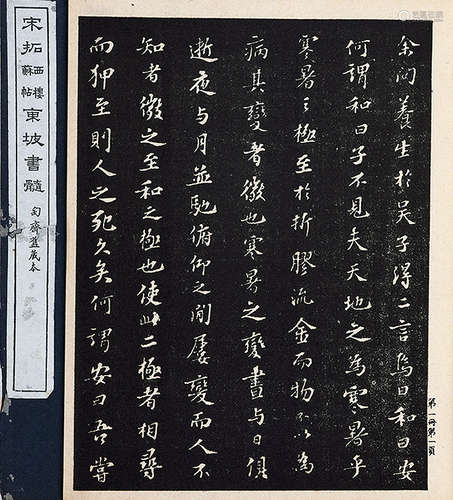 余問養生於吴子得二言焉曰和曰安
何謂和曰子不見夫天地之為寒暑乎
寒暑之極至於折膠流金而物不以為
病其變者微也寒暑之變晝與日俱
逝夜与月並馳俯仰之間屢變而人不
知者微之至和之極也使此二極者相尋
而狎至則人之死久矣何謂安曰吾嘗
第一冊第一頁
宋拓西樓蘇帖東坡書髓
匋齋藏本